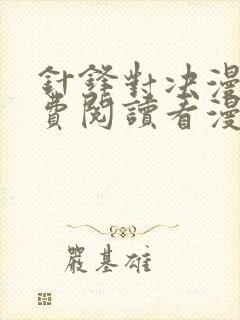 針鋒對决漫
費閱讀看漫
嚴基雄